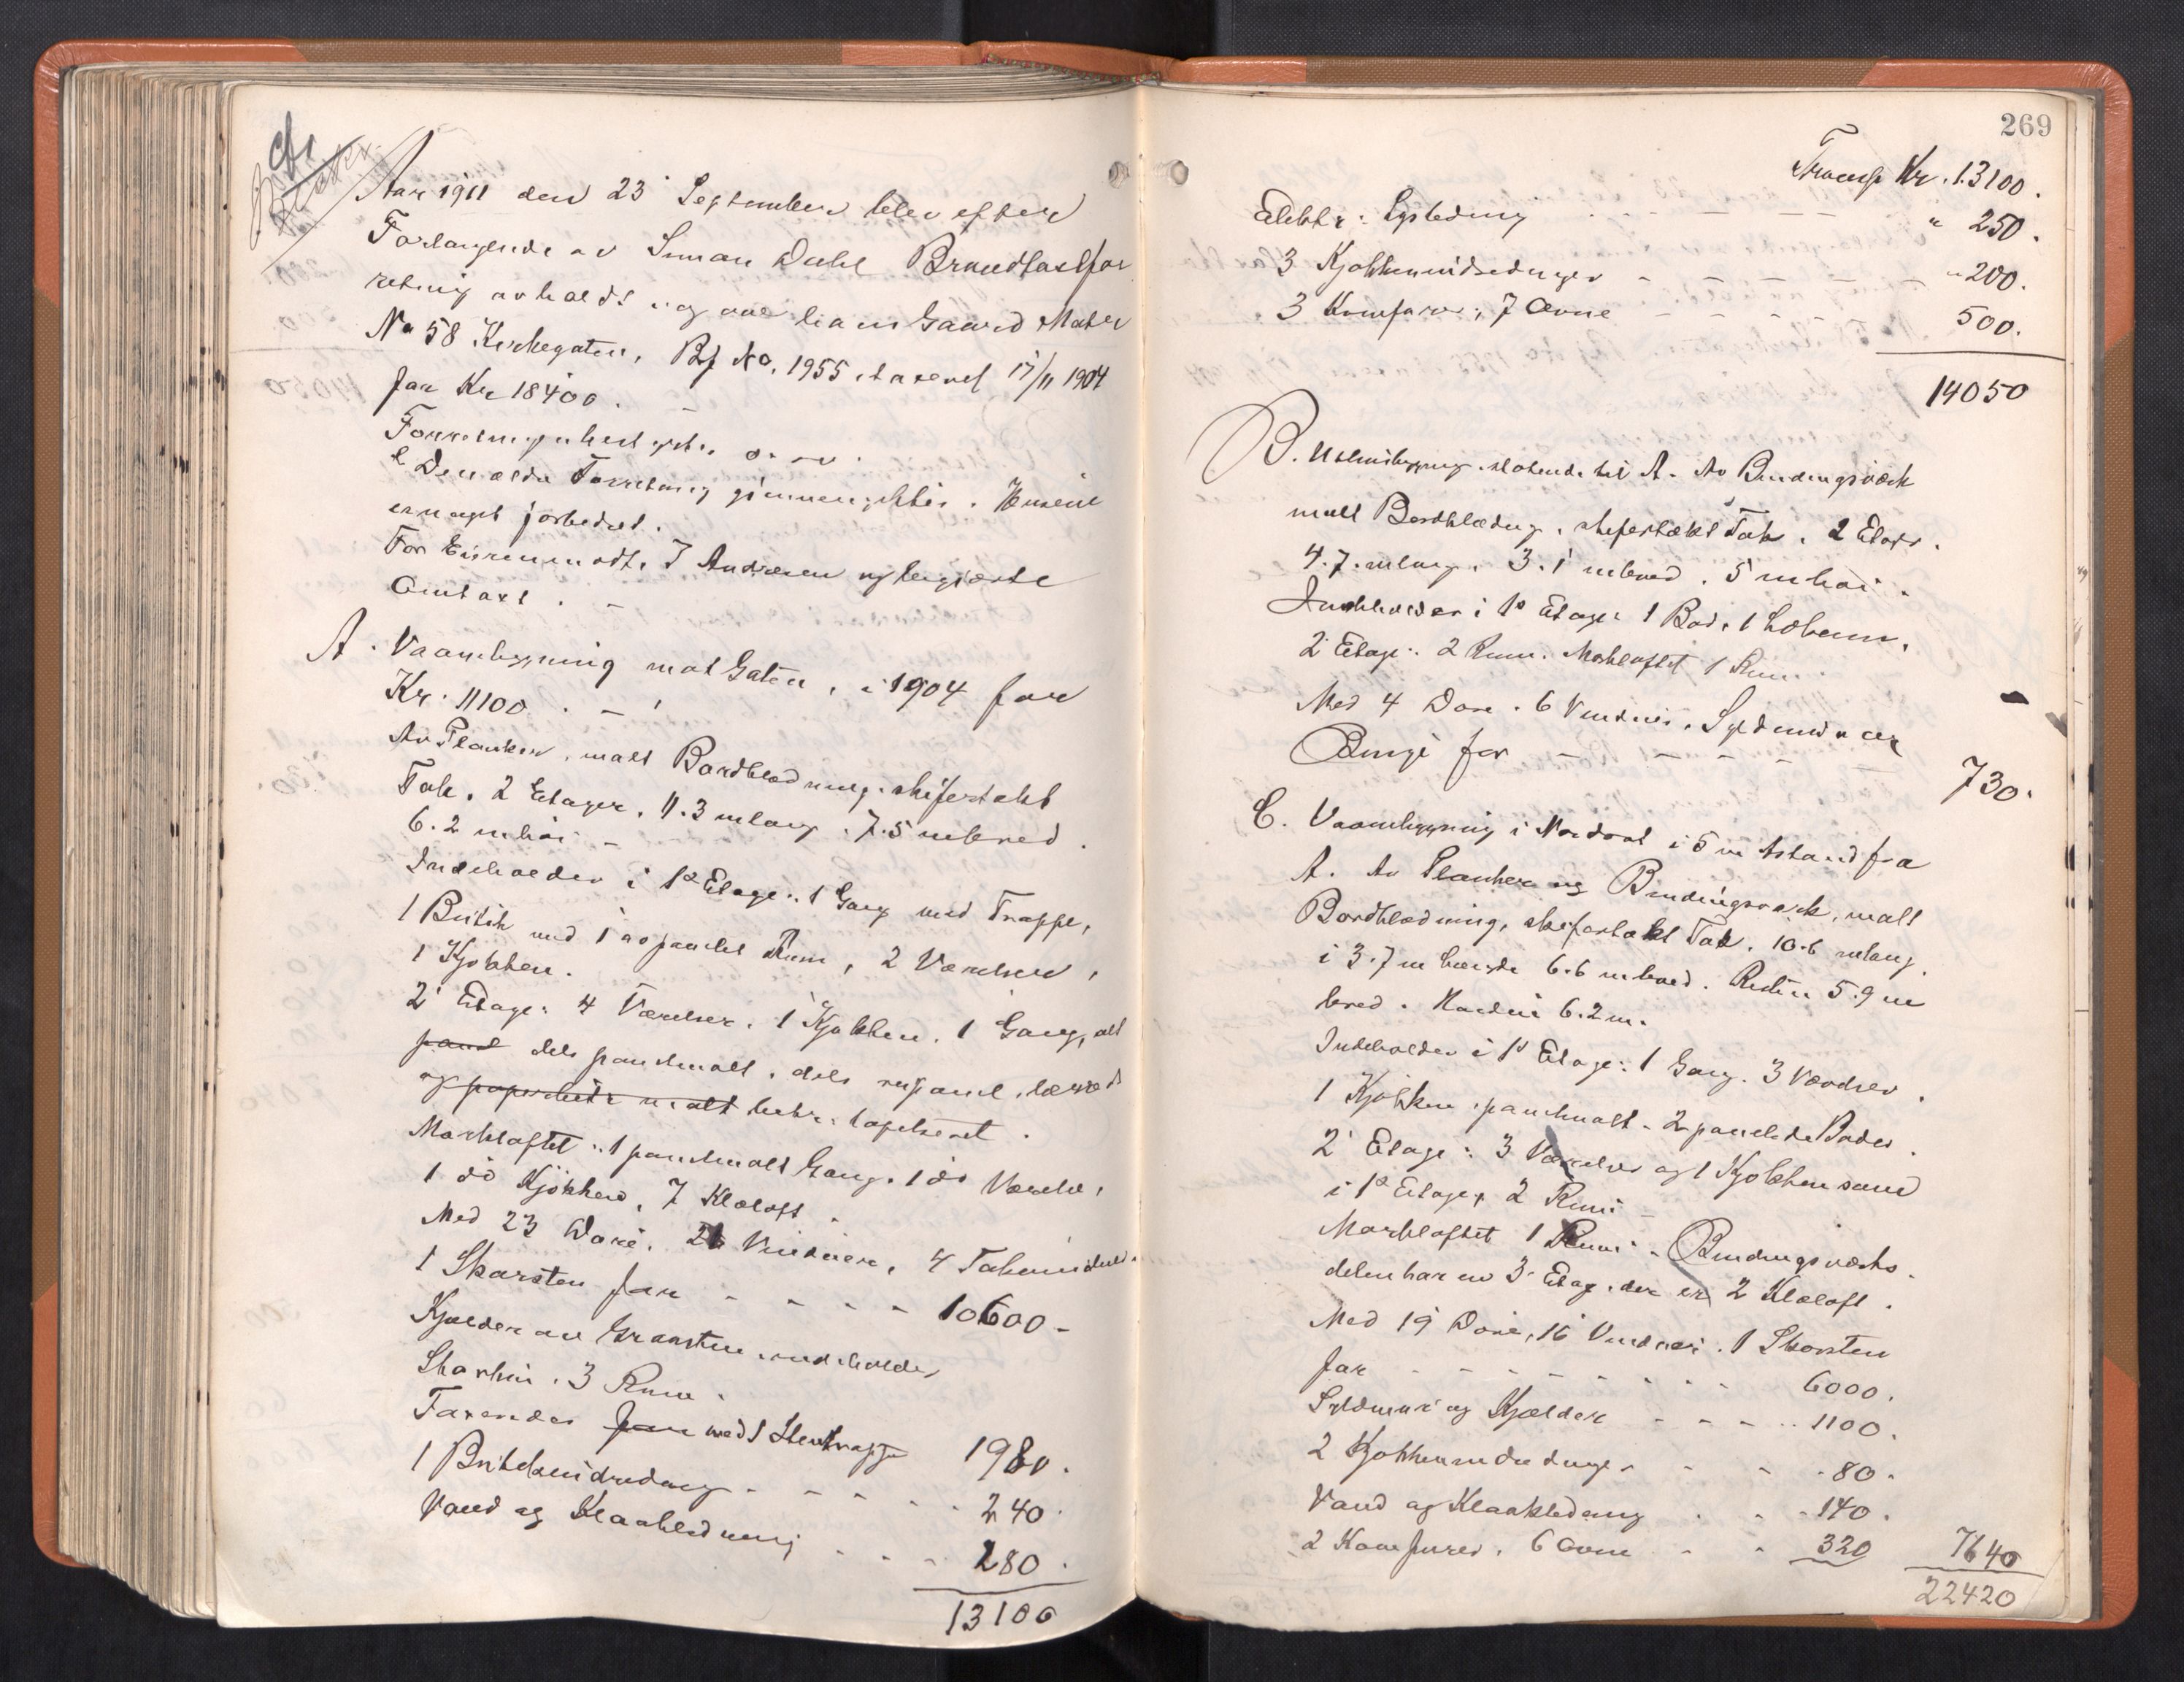 Aar 1911 den 23' September blev efter
Forlangende av Simon Dahl Brandtaxtfor
retning avholdt og over hans Gaard Matr
No 58 Kirkegaten, Bf No. 1955, taxeret 17/11 1904
for Kr 18400. –
Forretningen bestyrtes o. s. v.
Den ældre Forretning gjennemgikkes. Husene
er noget forbedret.
For Eieren mødte J Andresen og begjærte
Omtaxt. –
A. Vaaningsbygning mot Gaten, i 1904 for
Kr. 11100. –
Av Planker, malt Bordklædning, skifertækt
Tak. 2 Etager. 11.3 m lang. 7.5 m bred.
6.2 m høi –
Indeholder i 1ste Etage: 1 Gang med Trappe,
1 Butik med 1 avpanelet Rum, 2 Værelser,
1 Kjøkken.
2' Etage: 4 Værelser, 1 Kjøkken, 1 Gang, alt
panel dels panelmalt, dels rupanel, lærred
og papirklædt malt betr. tapetseret.
Mørkloftet: 1 panelmalt Gang, 1 do Værelse,
1 do Kjøkken, 7 Klæloft.
Med 23 Døre, 26 Vinduer, 4 Takvinduer
1 Skorsten for - - - - 10600 -
Kjælder av Graasten indeholder
3 Rum.
Taxeredes for med 1 Stentrappe 1980.
1 Butikindredning - - - - - 240.
Vand og Kloakledning - - - 280.
13100
269
Transp Kr. 13100.
Elektr: Lysledning - - - - - " 250.
3 Kjøkkenindredninger - - - - - " 200.
3 Komfurer, 7 Ovne - - - - - 500.
14050
B. Udhusbygning støtende til A. Av Bindingsværk
malt Bordklædning, skifertækt Tak. 2 Etager.
4.7 m lang. 3.1 m bred. 5 m høi.
Indeholder i 1ste Etage: 1 Bod, 1 Lokum,
2' Etage: 2 Rum. Mørkloftet 1 Rum.
Med 4 Døre. 6 Vinduer. Syldmur
Binge for - - - - - 730.
C. Vaaningsbygning i Nordost i 5 m Astand fra
A. Av Planker og Bindingsværk, malt
Bordklædning, skifertækt Tak. 10.6 m lang.
i 3.7 m Længde 6.6 m bred. Resten 5.9 m
bred. Høiden 6.2 m.
Indeholder i 1ste Etage: 1 Gang. 3 Værelser.
1 Kjøkken, panelmalt. 2 panelede Boder.
2' Etage: 3 Værelser og 1 Kjøkken som
i 1ste Etage, 2 Rum –
Mørkloftet 1 Rum. Bindingsværks-
delen har en 3' Etage, der er 2 Klæloft.
Med 19 Døre, 16 Vinduer. 1 Skorsten
for - - - - - - - 6000.
Syldmur og Kjælder - - - - 1100.
2 Kjøkkenindredninger - - - 80.
Vand og Kloakledning - - - 140.
2 Komfurer, 6 Ovne - - 320 7640
22420